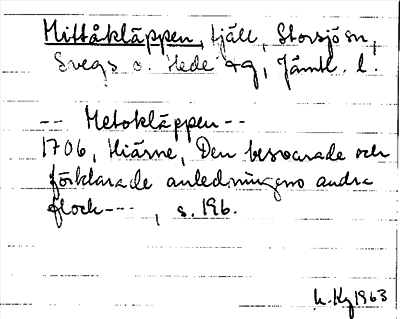 Mittåkläppen, fjäll, Storsjö sn,
Svegs o. Hede tg, Jämtl. l.
-- Metokläppen --
1706, Hiärne, Den besvarade och
förklarade anledningens andra
flock---, s. 196.
1963